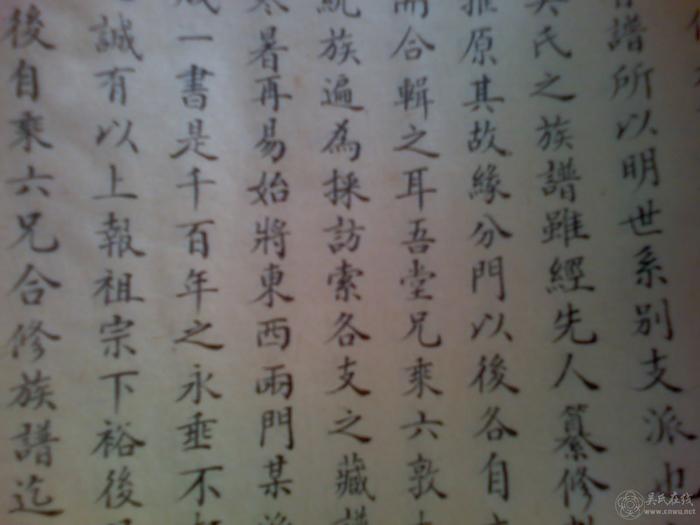 譜所以明世系別支派也
吳氏之族譜雖經先人纂修
推原其故緣分門以後各自
而合輯之耳吾堂兄乘六敦
統族遍為採訪索各支之藏譜
寒暑再易始將東西兩門某
成一書是千百年之永垂不
誠有以上報祖宗下裕後
後自乘六兄合修族譜迄
吴氏在线
www.cnwu.net